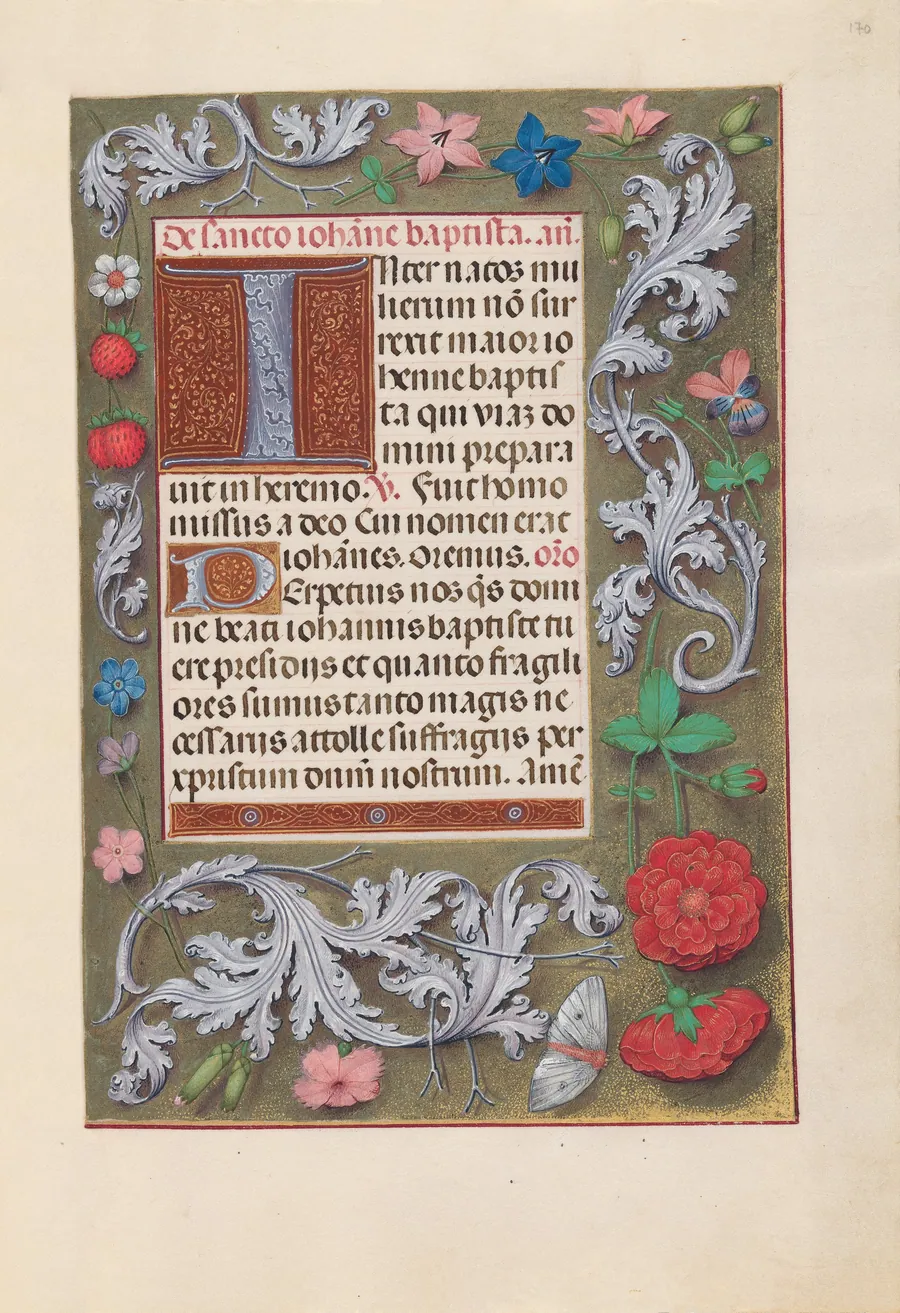 170
De sancto iohãne baptista. añ.
INter natos mu
lierum nõ sur
rexit maior io
henne baptis
ta qui viaz do
mini prepara
uit in heremo. V. Fuit homo
missus a deo Cui nomen erat
iohãnes. Oremus. orõ
PErpetuis nos q̃s domi
ne beati iohannis baptiste tu
ere presidijs et quanto fragili
ores sumus tanto magis ne
cessarijs attolle suffragijs per
xp̄istum dnm̄ nostrum. Amẽ